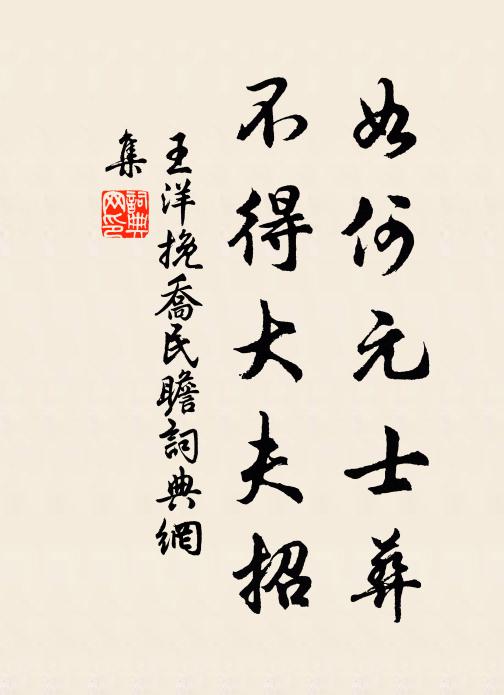 如何元士葬
不得大夫招
王洋挽喬民瞻詞典網
集
詞典
网印